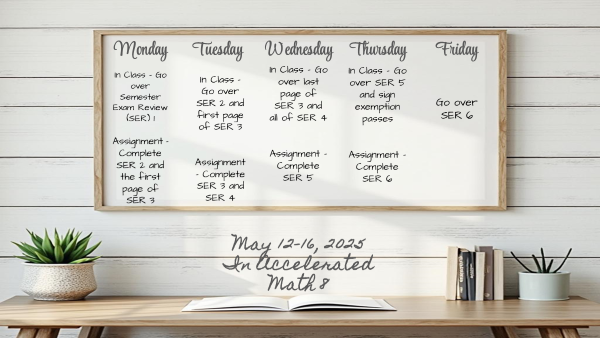 Monday
In Class - Go
over
Semester
Exam Review
(SER) 1
Assignment -
Complete
SER 2 and
the first
page of
SER 3
Tuesday
In Class -
Go over
SER 2 and
first page
of SER 3
Assignment
- Complete
SER 3 and
SER 4
Wednesday
In Class - Go
over last
page of
SER 3 and
all of SER 4
Assignment -
Complete
SER 5
Thursday
In Class - Go
over SER 5
and sign
exemption
passes
Assignment -
Complete
SER 6
Friday
Go over
SER 6
May 12-16, 2025
In Accelerated
Math 8